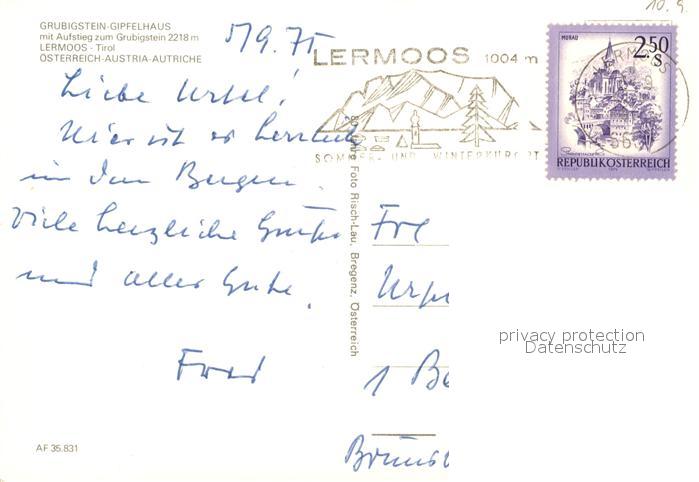 GRUBIGSTEIN-GIPFELHAUS
mit Aufstieg zum Grubigstein 2218 m
LERMOOS - Tirol
ÖSTERREICH-AUSTRIA-AUTRICHE
5/9.75
Liebe Ursel!
Hier ist es herrlich
in den Bergen.
Viele herzliche Grüße
und alles Gute.
Fred
AF 35.831
Foto Risch-Lau, Bregenz, Österreich
LERMOOS 1004 m
SOMMER- UND WINTERKURORT
10.9.
MURAU
2.50
S
REPUBLIK ÖSTERREICH
1 Be
privacy protection
Datenschutz